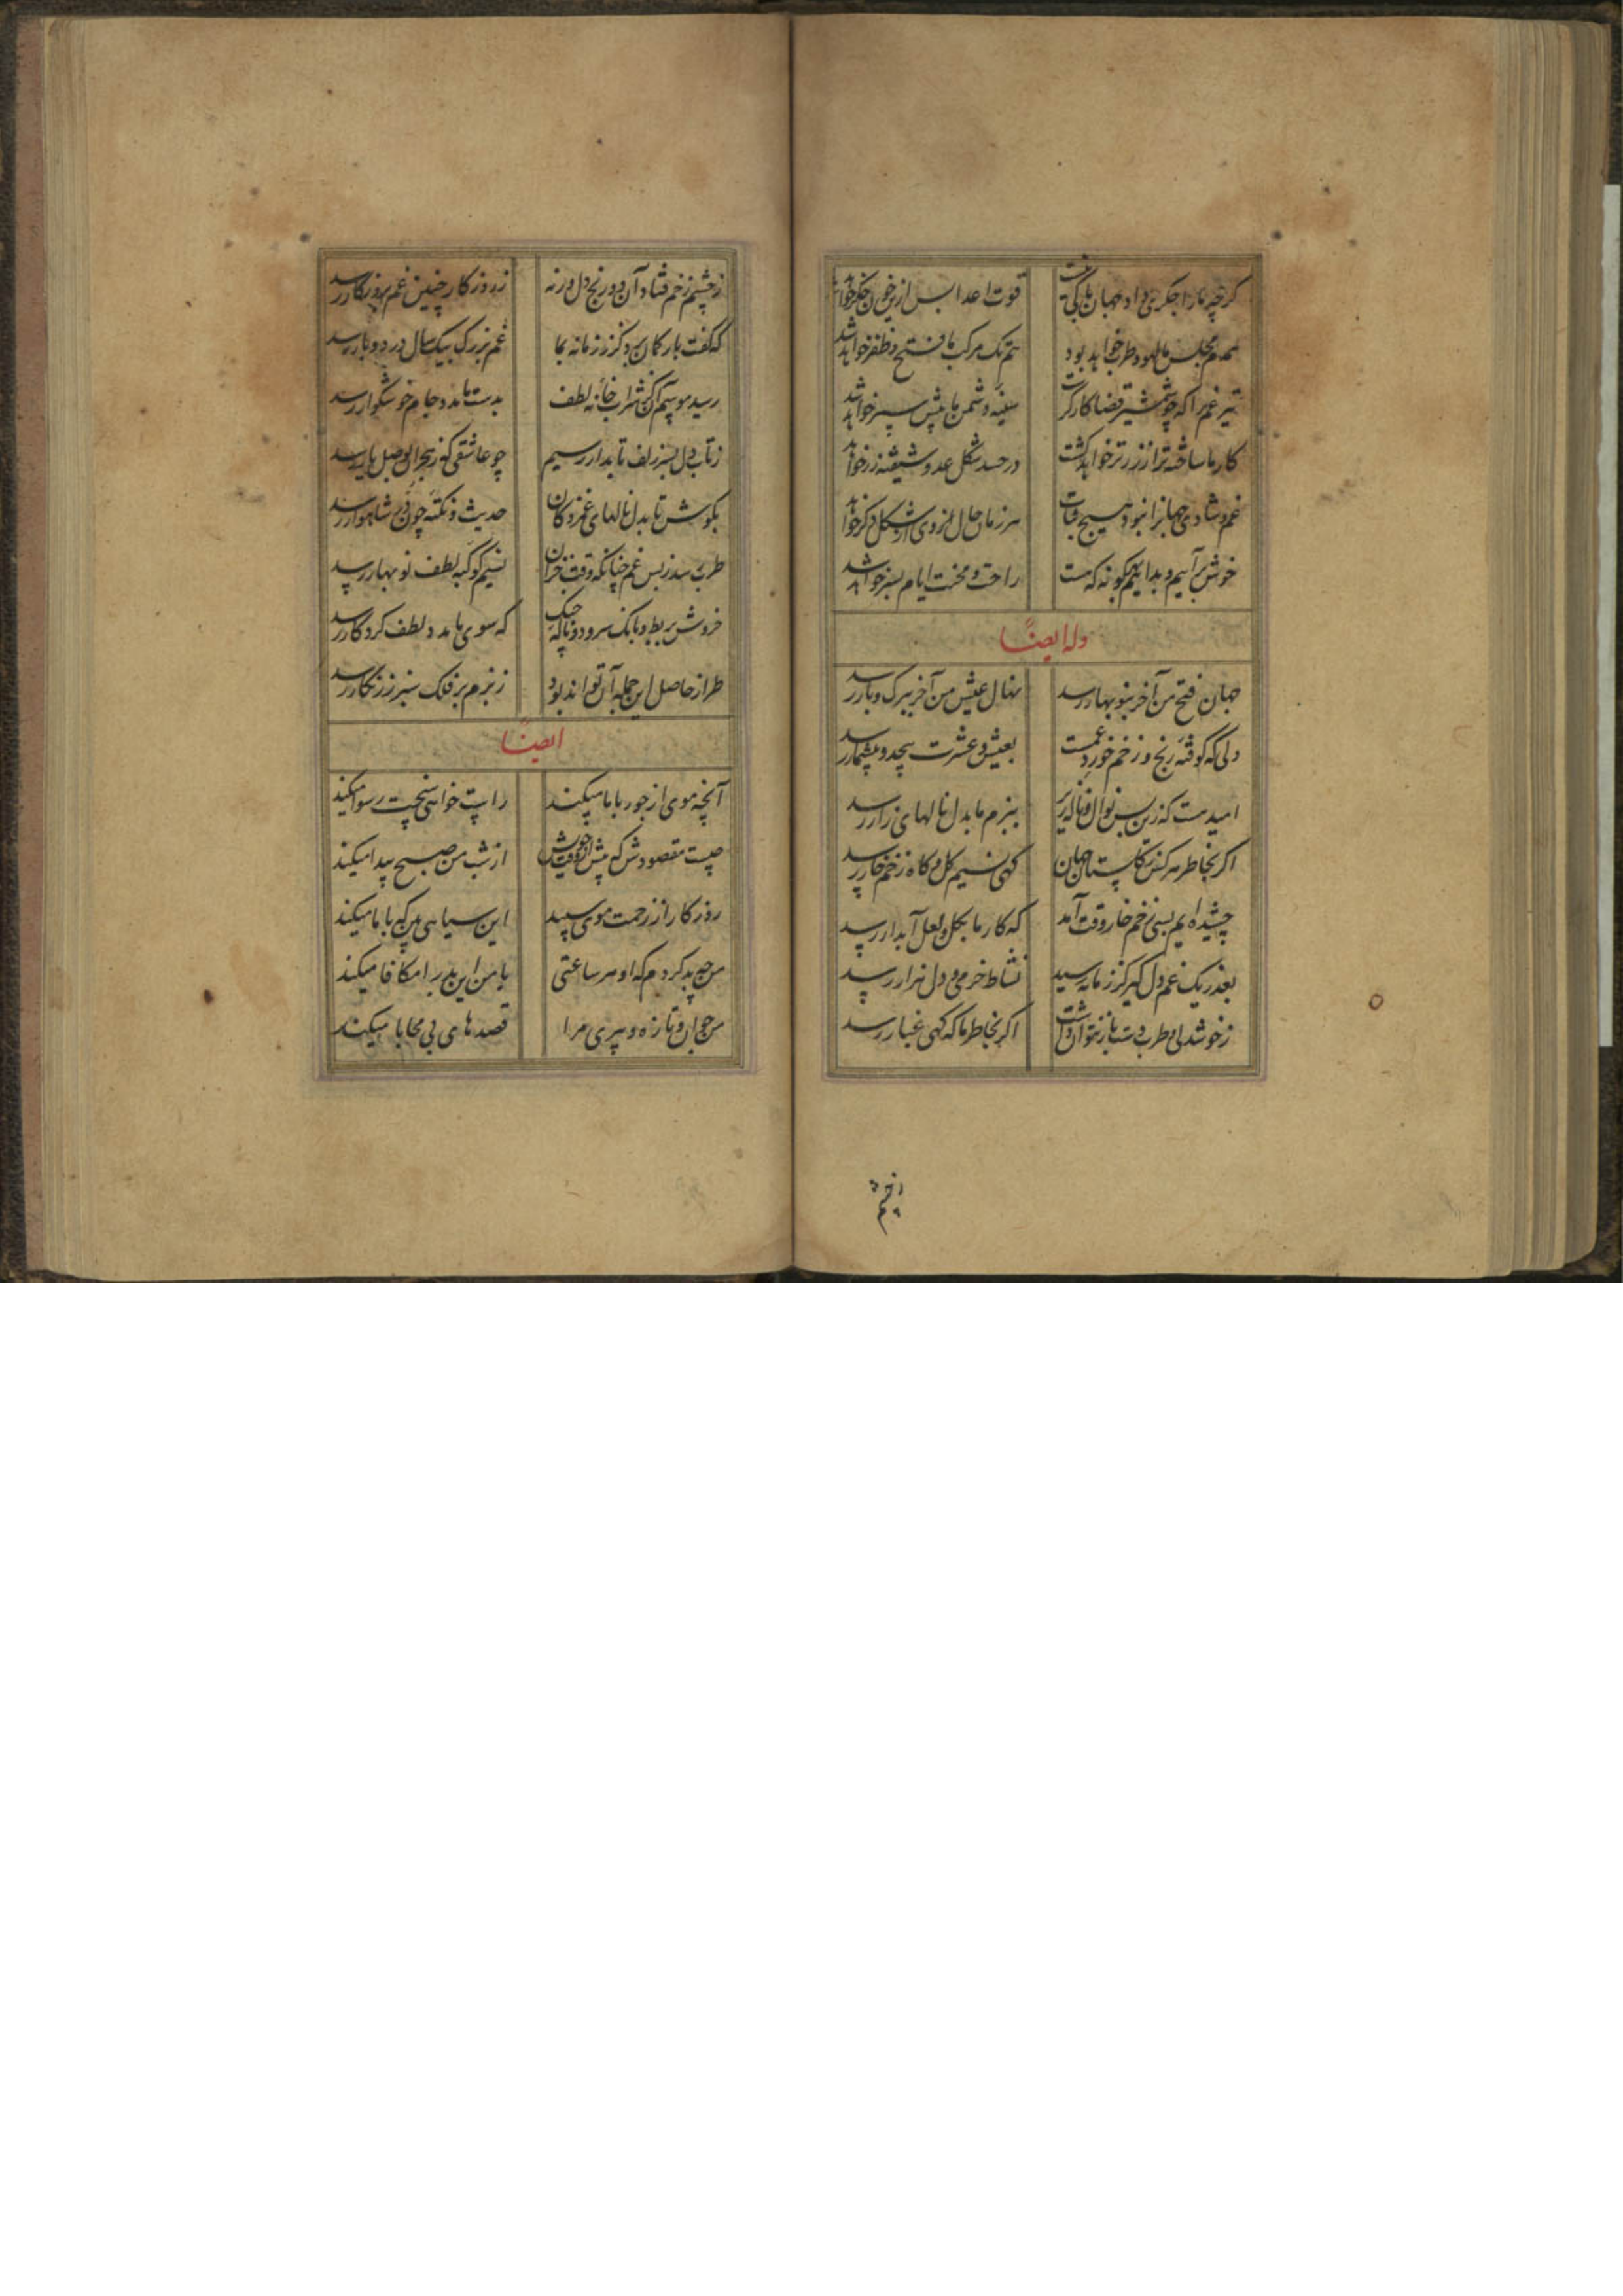 کرچه ما را جکری داد جهان باکی نیست قوت اعدا بس ازین خون جکر خواهد شد
همدم مجلس ما لهو و طرب خواهد بود هم تک مرکب ما فتح و ظفر خواهد شد
تیر غم را که چو شمشیر قضا کارکرست سینه دشمن ما پیش سپر خواهد شد
کار ما ساخته تر از زر تر خواهد کشت در حسد شکل عدو شیفته زر خواهد
غم و شادی جهانرا نبود هیچ ثبات هر زمان حال وی از شکل دکر خواهد
خوش برآییم و بدانیم که هر کونه که هست راحت و محنت ایام بسر خواهد شد
وله ایضاً
جهان فتح من آخر بنو بهار رسد نهال عیش من آخر ببرک و بار رسد
دلی که کوفته رنج و زخم خورد غمست بعیش و عشرت بیحد و بیشمار رسد
امید هست که زین پس نوال و ناله زیر ببزم ما بدل نالهای زار رسد
اکر بخاطر هر کس ز کلستان جهان کهی نسیم کل و کاه زخم خار رسد
چشیده ایم بسی زخم خار وقت آمد که کار ما بکل و لعل آبدار رسد
بعذر یک غم دل کیر کز زمانه رسید نشاط خرمی و دل هزار رسد
ز خوشدلی و طرب دست باز نتوان داشت اکر بخاطر ما که کهی غبار رسد
ز چشم
ز چشم زخم فتاد آن و رنج دل ورنه ز روزکار چنین غم بروزکار رسد
که کفت بار کمان برد کز زمانه بما غم بزرک بیک سال در دو بار رسد
رسید موسم آن کز شرابخانه لطف بدست ما مدد جام خوشکوار رسد
ز تاب دل بسر زلف تابدار رسیم چو عاشقی که ز هجران بوصل یار رسد
بکوش تا بدل نالهای غمزدکان حدیث و نکته چون در شاهوار رسد
طرب رسد ز پس غم چنانکه وقت خزان نسیم کوکبه لطف نو بهار رسد
خروش بربط و بانک سرود و ناله چنک که سوی ما مدد لطف کردکار رسد
طراز حاصل این جمله آن تواند بود ز بزم بر فلک سبز زرنکار رسد
ایضاً
آنچه موی از جور با ما میکند راست خواهی سخت رسوا میکند
چیست مقصودش که پیش از وقت خویش از شب من صبح پیدا میکند
روزکار از زحمت موی سپید این سیاهی بین که با ما میکند
من چه بد کردم که او هر ساعتی با من این بد را مکافا میکند
من جوان و تازه و پیری مرا قصدهای بی محابا میکند